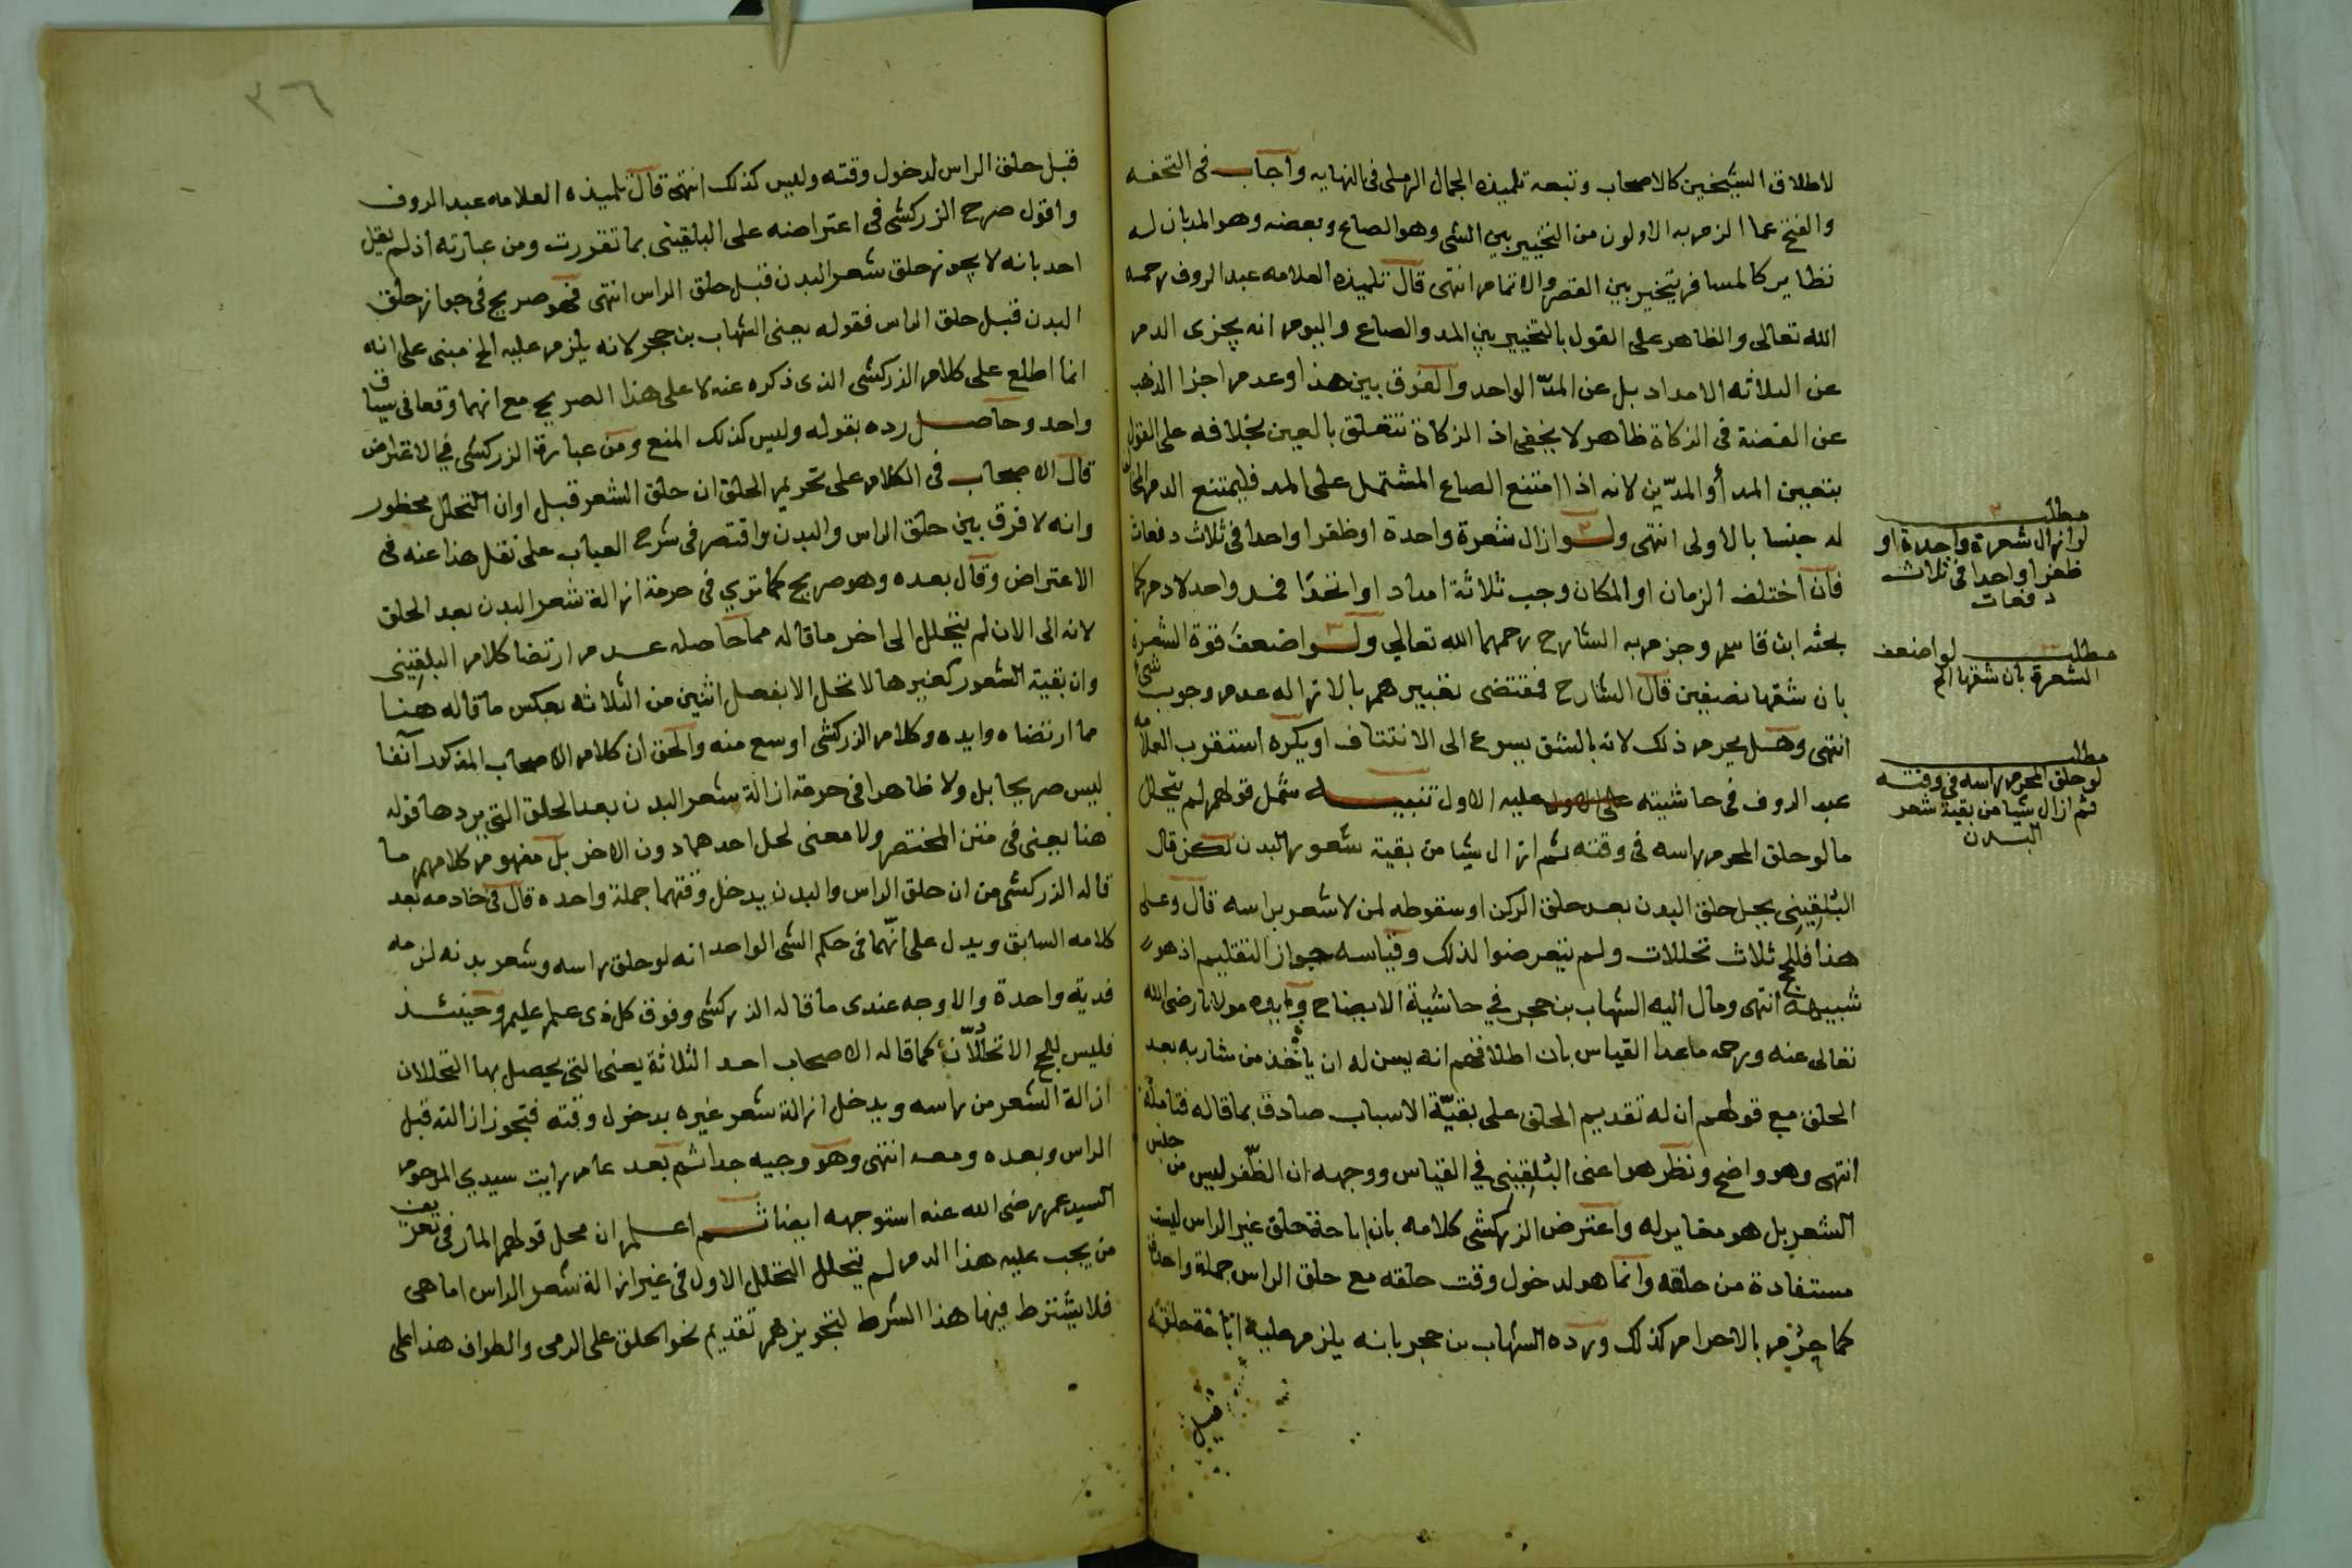 لاطلاق الشيخين كالاصحاب وتبعه تلميذه الجمال الرملى فى النهايه وأجاب فى التحفه
والفتح عما الزم به الاولون من التخيير بين الشى وهو الصاع وبعضه وهو المد بان له
نظاير كالمسافر يتخير بين القصر والاتمام انتهى قال تلميذه العلامه عبد الروف رحمه
الله تعالى والظاهر على القول بالتخيير بين المد والصاع واليوم انه يجزى الدم
عن الثلاثه الامداد بل عن المدّ الواحد والفرق بين هذا وعدم اجزا الذهب
عن الفضة فى الزكاة ظاهر لا يخفى اذ الزكاة تتعلق بالعين بخلافه على القول
بتعيين المد أو المدّين لانه اذا امتنع الصاع المشتمل على المد فليمتنع الدم المخالف
له جنسا بالاولى انتهى ولو ازال شعرة واحدة او ظفرا واحدا فى ثلاث دفعات
فان اختلف الزمان او المكان وجب ثلاثة امداد او اتحدا فمد واحد لا دم كما
بحثه ابن قاسم وجزم به الشارح رحمهما الله تعالى ولو اضعف قوة الشعرة
بان شقها نصفين قال الشارح فمقتضى تعبيرهم بالازاله عدم وجوب شئ
انتهى وهل يحرم ذلك لانه بالشق يسرع الى الانتتاف او يكره استقرب العلامه
عبد الروف فى حاشيته عليه الاول تنبيه شمل قولهم لم يتحلل
ما لو حلق المحرم راسه فى وقته ثم ازال شيا من بقية شعور البدن لكن قال
البُلقِينِى يحل حلق البدن بعد حلق الركن او سقوطه لمن لا شعر براسه قال وعلى
هذا فللحج ثلاث تحللات ولم يتعرضوا لذلك وقياسه جواز التقليم اذ هو
شبيهه انتهى ومال اليه الشهاب بن حجر في حاشية الايضاح وايده مولانا رضى الله
تعالى عنه ورحمه ما عدا القياس بان اطلاقهم انه يسن له ان ياخذ من شاربه بعد
الحلق مع قولهم ان له تقديم الحلق على بقيّة الاسباب صادق بما قاله فتامله
انتهى وهو واضح ونظر هو اعنى البُلقِينِى في القياس ووجهه ان الظفر ليس من جنس
الشعر بل هو مغاير له واعترض الزركشى كلامه بان اباحة حلق غير الراس ليست
مستفادة من حلقه وانما هو لدخول وقت حلقه مع حلق الراس جملة واحدة
كما حرم بالاحرام كذلك ورده الشهاب بن حجر بانه يلزم عليه اباحة حلقه
قبل
مطلب
لو ازال شعرة واحدة او
ظفرا واحدا فى ثلاث
دفعات
مطلب لو اضعف
الشعرة بان شقها الخ
مطلب
لو حلق المحرم راسه فى وقته
ثم ازال شيا من بقية شعر
البدن
٣٦
قبل حلق الراس لدخول وقته وليس كذلك انتهى قال تلميذه العلامه عبد الروف
واقول صرح الزركشى فى اعتراضه على البلقينى بما تقررت ومن عبارته اذ لم يقل
احد بانه لا يجوز حلق شعر البدن قبل حلق الراس انتهى فهو صريح فى جواز حلق
البدن قبل حلق الراس فقوله يعنى الشهاب بن حجر لانه يلزم عليه الخ مبنى على انه
انما اطلع على كلام الزركشى الذى ذكره عنه لا على هذا الصريح مع انهما وقعا فى سياق
واحد وحاصل رده بقوله وليس كذلك المنع ومن عبارة الزركشى في الاعتراض
قال الاصحاب فى الكلام على تحريم الحلق ان حلق الشعر قبل اوان التحلل محظور
وانه لا فرق بين حلق الراس والبدن واقتصر فى شرح العباب على نقل هذا عنه فى
الاعتراض وقال بعده وهو صريح كما تري فى حرمة ازالة شعر البدن بعد الحلق
لانه الى الان لم يتحلل الى اخر ما قاله مما حاصله عدم ارتضا كلام البلقينى
وان بقية الشعور كغيرها لا تحل الا بفعل اثنين من الثلاثه بعكس ما قاله هنا
مما ارتضاه وايده وكلام الزركشى اوسع منه والحق ان كلام الاصحاب المذكور آنفا
ليس صريحا بل ولا ظاهرا فى حرمة ازالة شعر البدن بعد الحلق التى يردها قوله
هنا يعنى فى متن المختصر ولا معنى لحل احدهما دون الاخر بل مفهوم كلامهم ما
قاله الزركشى من ان حلق الراس والبدن يدخل وقتهما جملة واحده قال فى خادمه بعد
كلامه السابق ويدل على انّهما فى حكم الشى الواحد انه لو حلق راسه وشعر بدنه لزمه
فدية واحدة والاوجه عندى ما قاله الزركشى وفوق كل ذى علم عليم وحينئذ
فليس للحج الا تحلُّلانِ كما قاله الاصحاب احد الثلاثة يعنى التى يحصل بها التحللان
ازالة الشعر من راسه ويدخل ازالة شعر غيره بدخول وقته فتجوز ازالته قبل
الراس وبعده ومعه انتهى وهو وجيه جدا ثم بعد عام رايت سيدي المرحوم
السيد عمر رضى الله عنه استوجهه ايضا ثم اعلم ان محل قولهم المار فى تعريف
من يجب عليه هذا الدم لم يتحلل التحلل الاول فى غير ازالة شعر الراس اما هى
فلا يشترط فيها هذا الشرط لتجويزهم تقديم نحو الحلق على الرمى والطواف هذا على